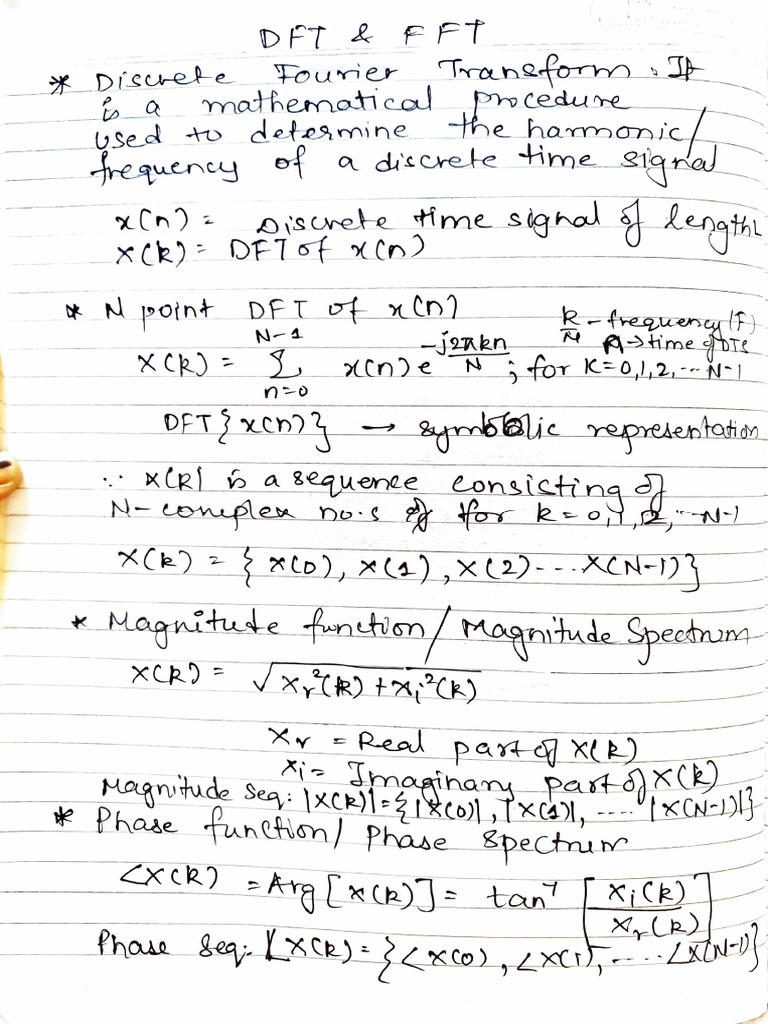 DFT & FFT
* Discrete Fourier Transform : It
is a mathematical procedure
used to determine the harmonic/
frequency of a discrete time signal
x(n) = Discrete time signal of length L
X(k) = DFT of x(n)
* N point DFT of x(n)
k/N - frequency (F)
n → time of DTS
X(k) = N-1 Σ n=0 x(n) e^(-j2πkn/N) ; for K=0,1,2,...N-1
DFT{x(n)} → symbolic representation
∵ X(k) is a sequence consisting of
N-complex no.s of for k=0,1,2,...N-1
X(k) = { X(0), X(1), X(2)....X(N-1)}
* Magnitude function/Magnitude Spectrum
X(k) = √(Xr²(k) + Xi²(k))
Xr = Real part of X(k)
Xi = Imaginary part of X(k)
Magnitude seq: |X(k)|={|X(0)|, |X(1)|, .... |X(N-1)|}
* Phase function/ Phase Spectrum
∠X(k) = Arg[X(k)] = tan⁻¹ [Xi(k)/Xr(k)]
Phase seq: ∠X(k) = {∠X(0), ∠X(1), .....∠X(N-1)}